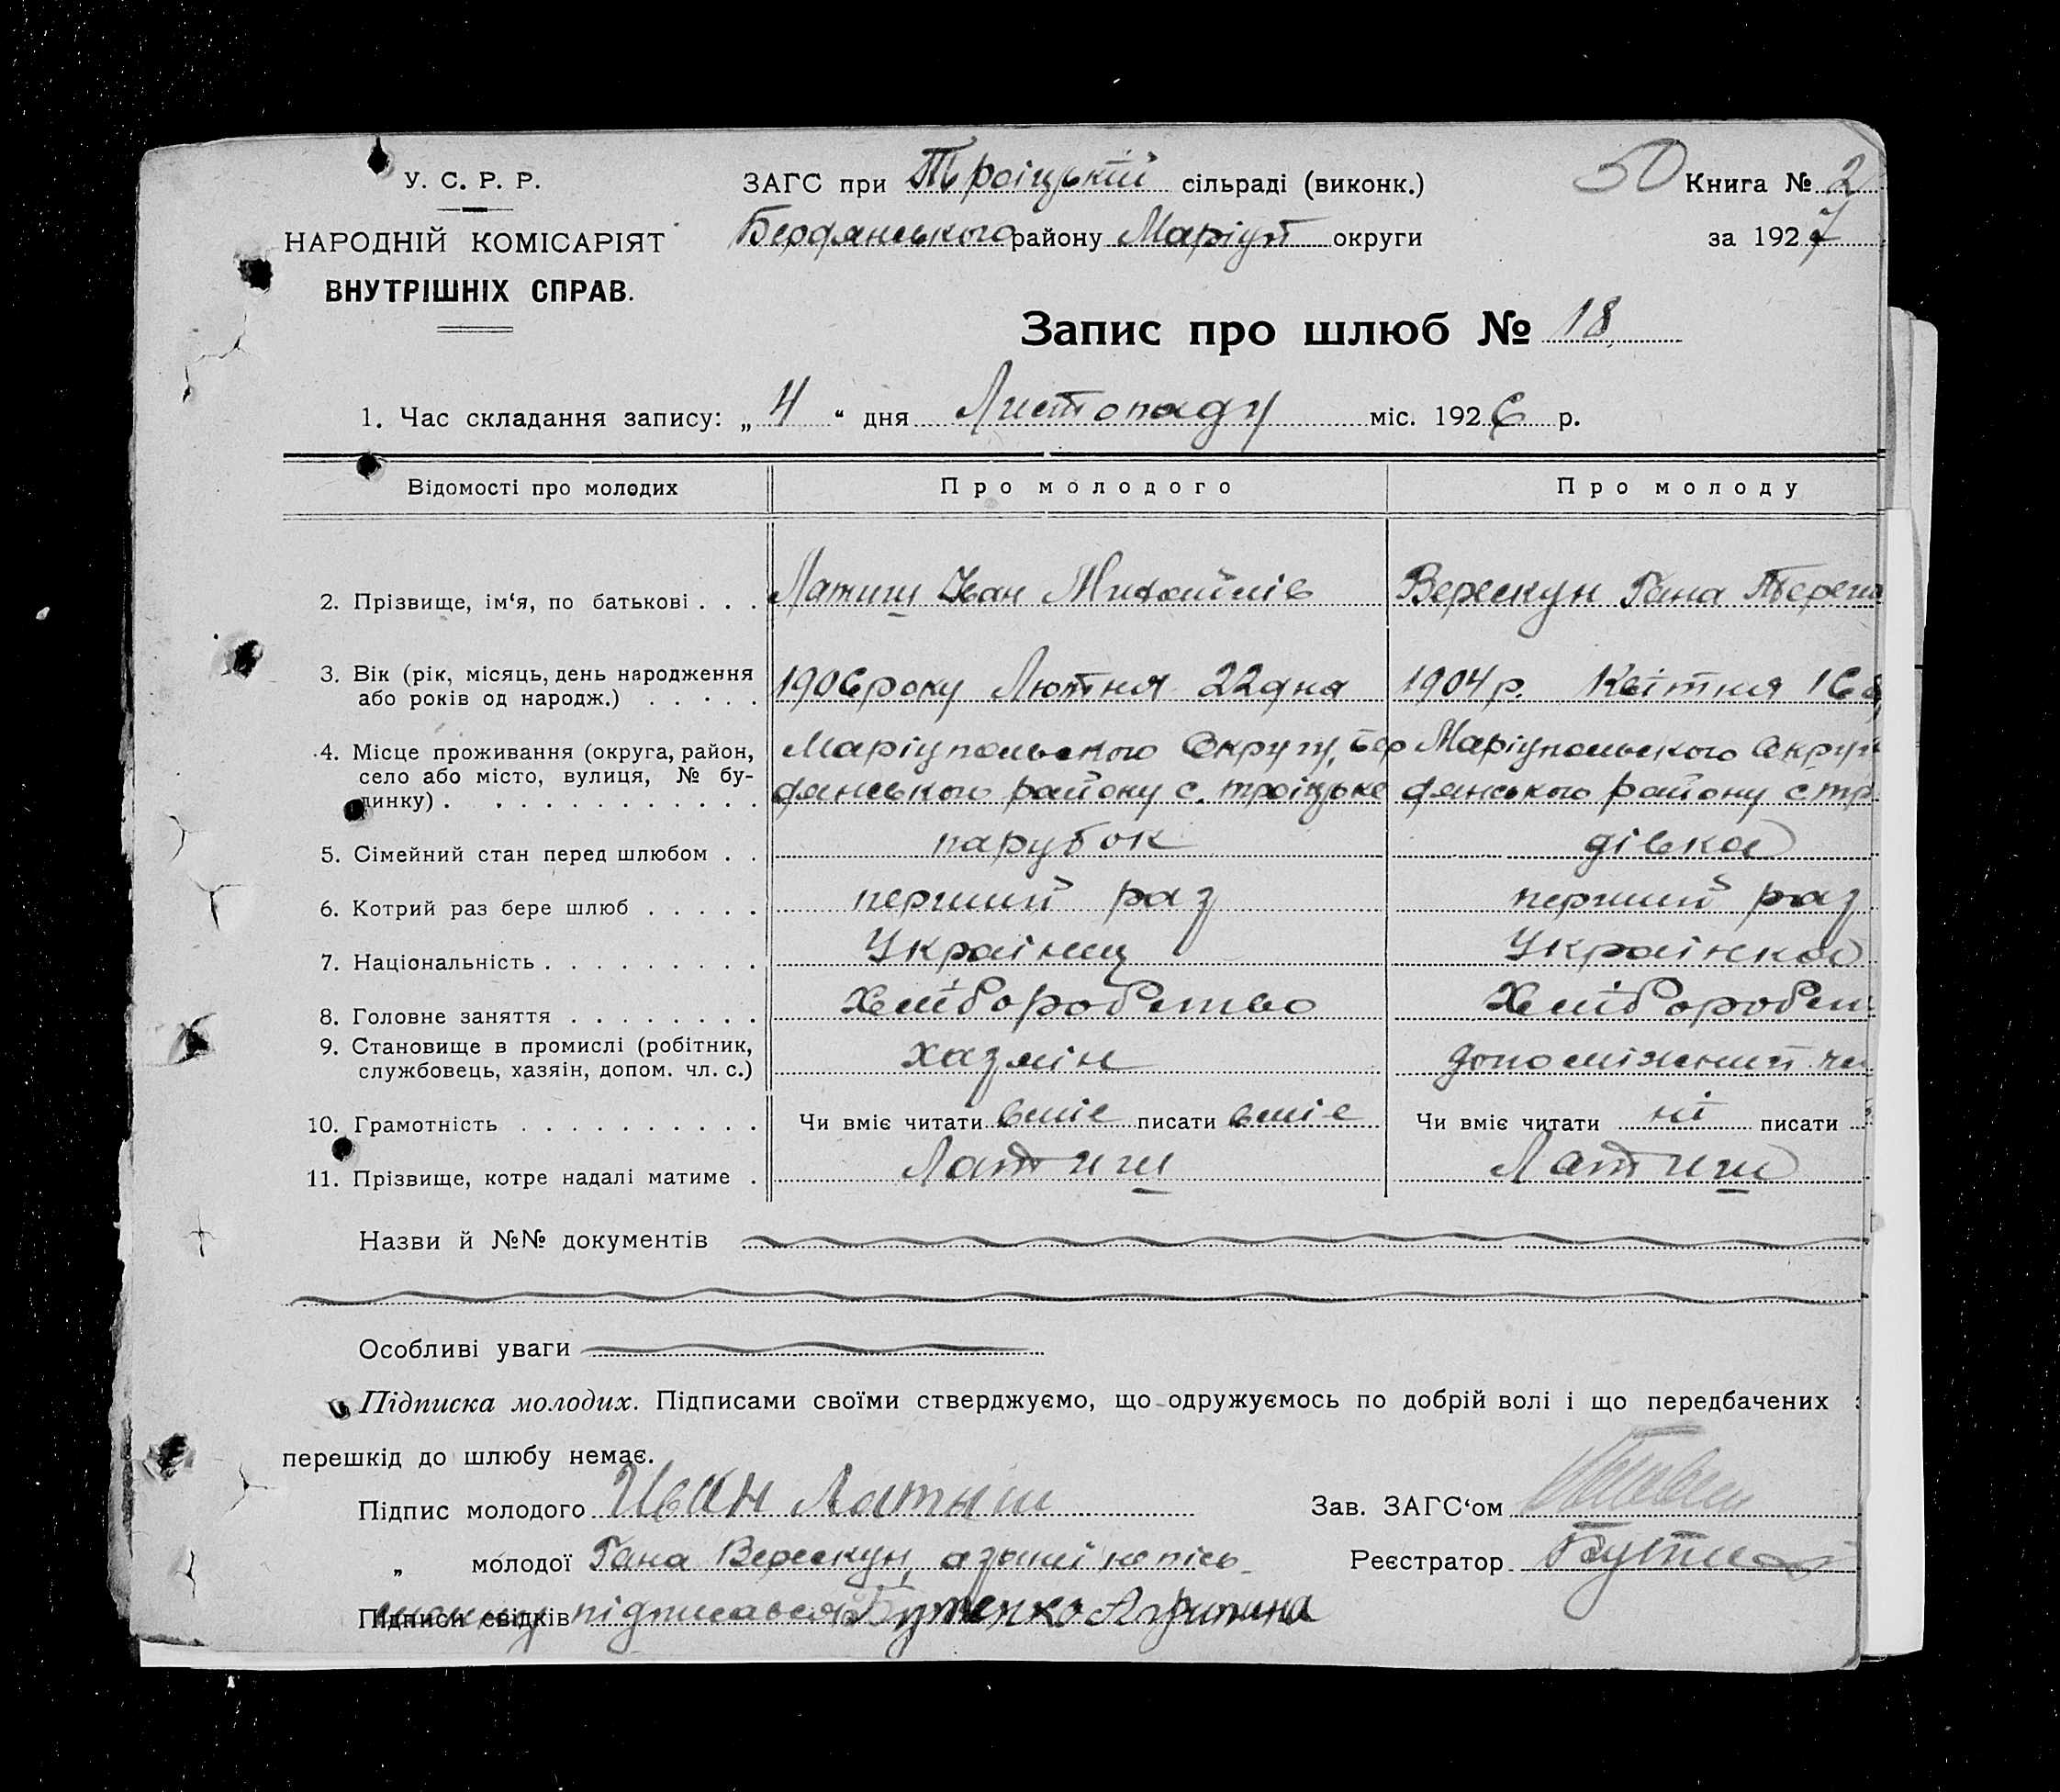 У. С. Р. Р.
НАРОДНІЙ КОМІСАРІЯТ
ВНУТРІШНІХ СПРАВ.
ЗАГС при Троіцькій сільраді (виконк.)
Бердянського району Маріуп округи
50 Книга № 2
за 1927
Запис про шлюб № 18
1. Час складання запису: „ 4 “ дня Листопаду міс. 1926 р.
Відомості про молодих Про молодого Про молоду
2. Прізвище, ім‘я, по батькові . . . Латиш Іван Михайлів Верескун Гана
3. Вік (рік, місяць, день народження
або років од народж.) . . . . . 1906 року Лютня 22 дня 1904 р. Квітня 16
4. Місце проживання (округа, район, Маріупольского Округу, Бер Маріупольского Округ
село або місто, вулиця, № бу- дянського району с. троіцьке дянського району с тр
динку) . . . . . . . . . . . .
5. Сімейний стан перед шлюбом . . парубок дівка
6. Котрий раз бере шлюб . . . . . перший раз перший раз
7. Національність . . . . . . . . . Украінец Украінка
8. Головне заняття . . . . . . . . Хліборобство Хлібороб
9. Становище в промислі (робітник,
службовець, хазяін, допом. чл. с.) хазяін допоміжний
10. Грамотність . . . . . . . . . . Чи вміє читати вміє писати вміє Чи вміє читати ні писати
11. Прізвище, котре надалі матиме . Латиш Латиш
Назви й №№ документів
Особливі уваги
Підписка молодих. Підписами своїми стверджуємо, що одружуємось по добрій волі і що передбачених
перешкід до шлюбу немає.
Підпис молодого Иван Латыш Зав. ЗАГС‘ом
„ молодої Гана Верескун, Реєстратор
Підписи свідків Бутенко